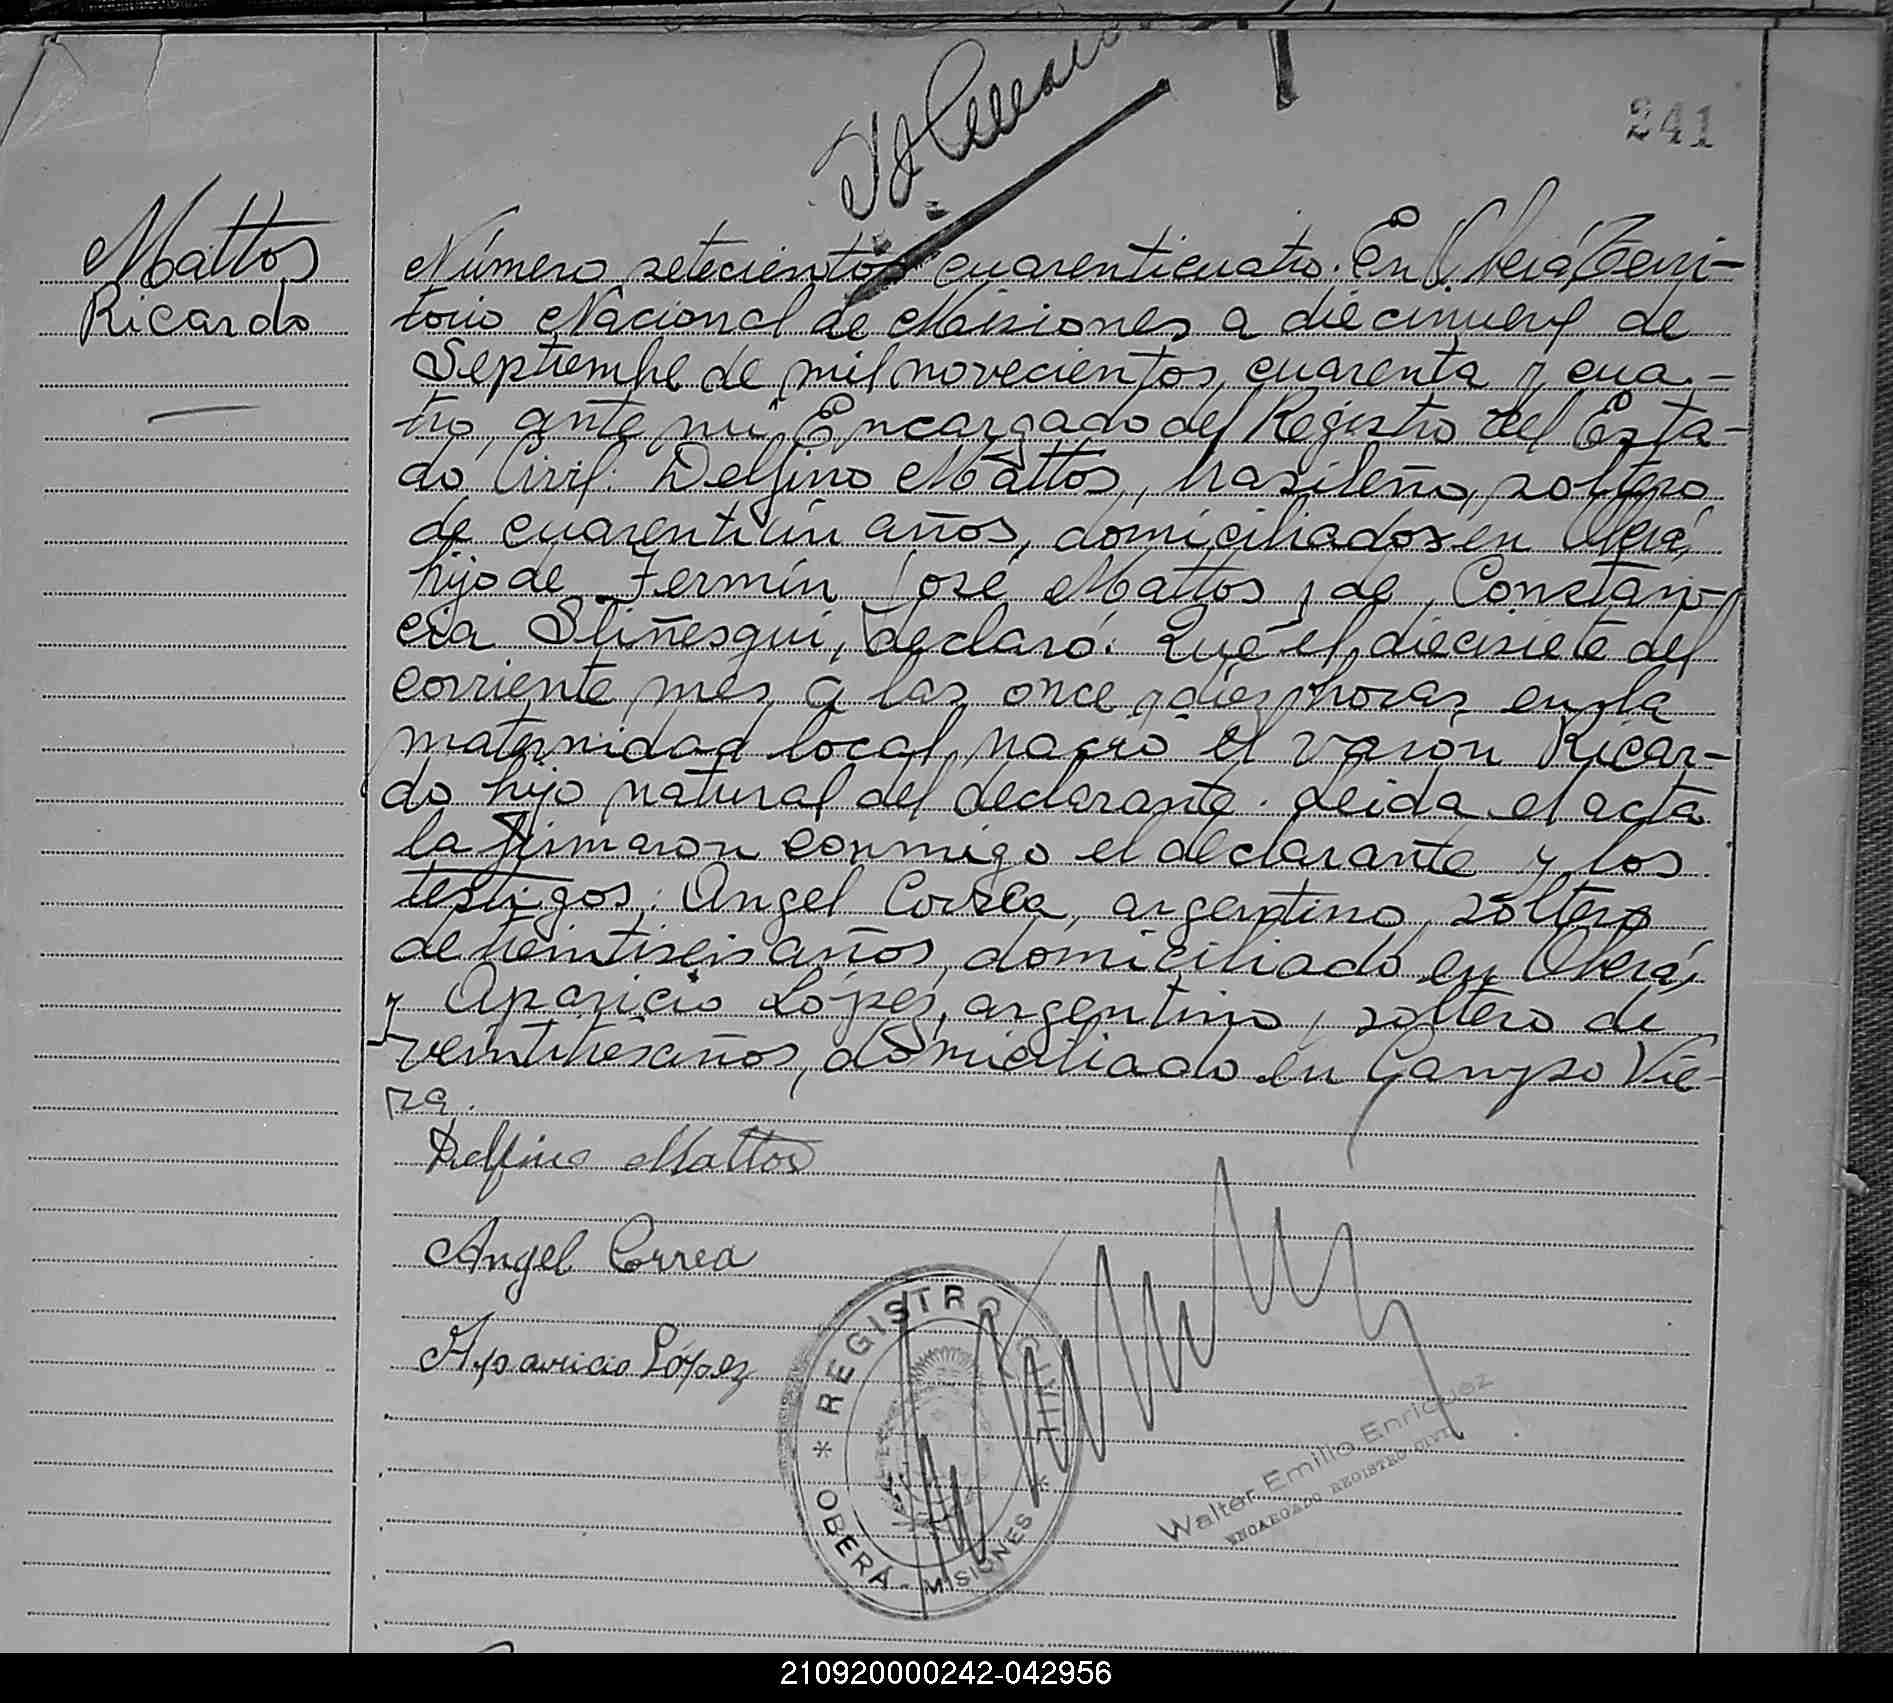 241
Mattos
Ricardo
Número setecientos cuarenticuatro. En Oberá Terri-
torio Nacional de Misiones a diecinueve de
Septiembre de mil novecientos cuarenta y cua-
tro, ante mí Encargado del Registro del Esta-
do Civil: Delfino Mattos, brasileño, soltero
de cuarentiún años, domiciliados en Oberá,
hijo de Fermín José Mattos y de Constan-
cia Sliñesqui, declaró: Que el diecisiete del
corriente mes a las once y diez horas en la
maternidad local nació el varón Ricar-
do hijo natural del declarante. Leida el acta
la firmaron conmigo el declarante y los
testigos: Angel Correa, argentino, soltero
de veintiseis años, domiciliado en Oberá,
y Aparicio López, argentino, soltero de
veintitres años, domiciliado en Campo Vie-
ra.
Delfino Mattos
Angel Correa
Aparicio López
REGISTRO CIVIL
OBERÁ - MISIONES
Walter Emilio Enriquez
ENCARGADO REGISTRO CIVIL
210920000242-042956